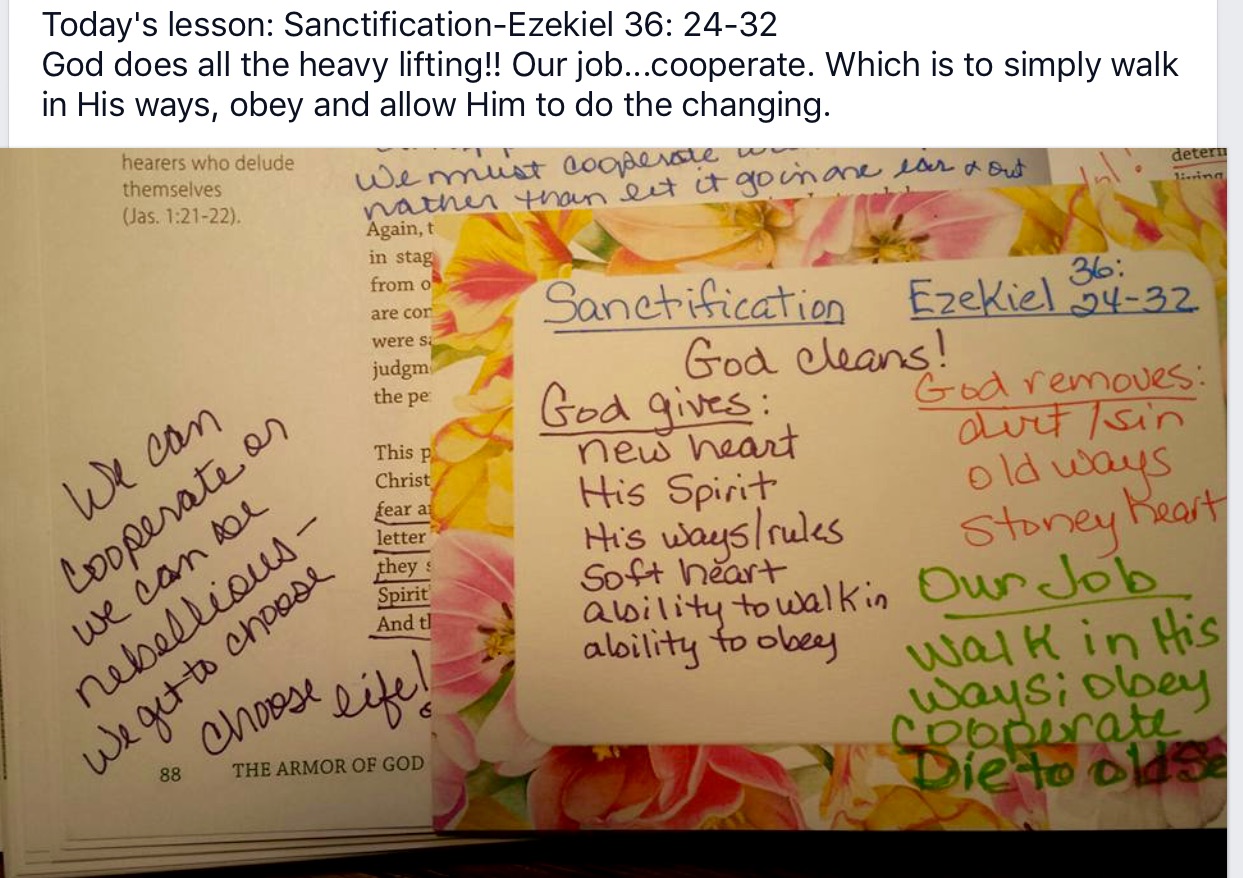 Today's lesson: Sanctification-Ezekiel 36: 24-32
God does all the heavy lifting!! Our job...cooperate. Which is to simply walk
in His ways, obey and allow Him to do the changing.
hearers who delude
themselves
(Jas. 1:21-22).
We must cooperate
rather than let it go in one ear & out
Again, t
in stag
from o
are con
were sa
judgm
the pe
This p
Christ
fear a
letter
they s
Spirit
And tl
We can
cooperate or
we can be
rebellious-
We get to choose
choose life!
88 THE ARMOR OF GOD
Sanctification Ezekiel 36:
24-32
God cleans!
God gives:
new heart
His Spirit
His ways/rules
Soft heart
ability to walk in
ability to obey
God removes:
dirt/sin
old ways
Stoney heart
Our Job
Walk in His
ways; obey
Cooperate
Die to old Se